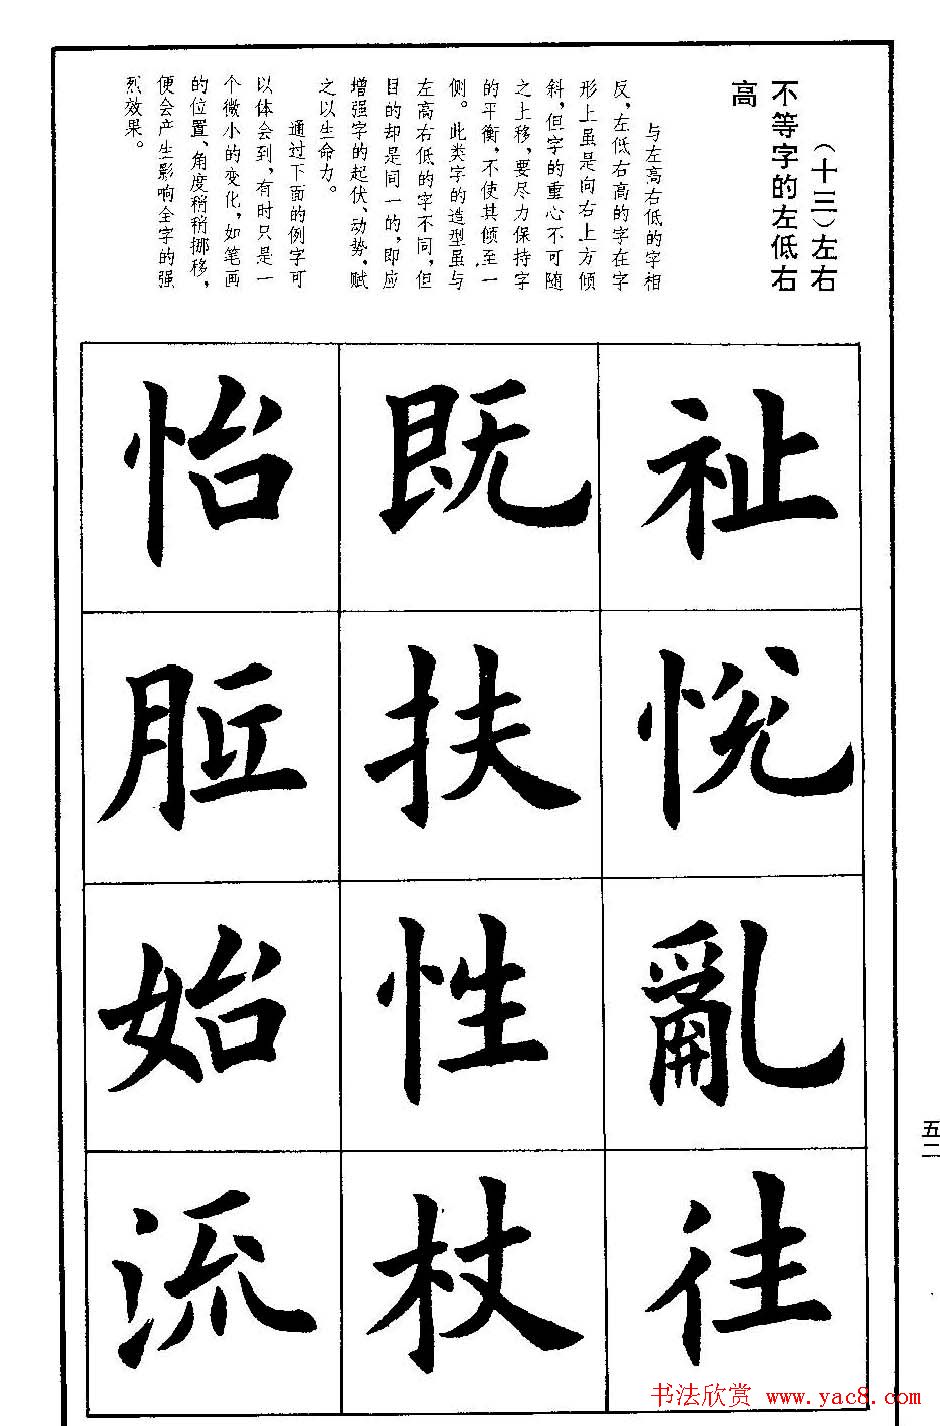 (十三)左右
不等字的左低右
高
与左高右低的字相
反,左低右高的字在字
形上虽是向右上方倾
斜,但字的重心不可随
之上移,要尽力保持字
的平衡,不使其倾至一
侧。此类字的造型虽与
左高右低的字不同,但
目的却是同一的,即应
增强字的起伏、动势,赋
之以生命力。
通过下面的例字可
以体会到,有时只是一
个微小的变化,如笔画
的位置、角度稍稍挪移,
便会产生影响全字的强
烈效果。
祉
悦
亂
往
既
扶
性
杖
怡
始
流
五二
书法欣赏 www.yac8.com